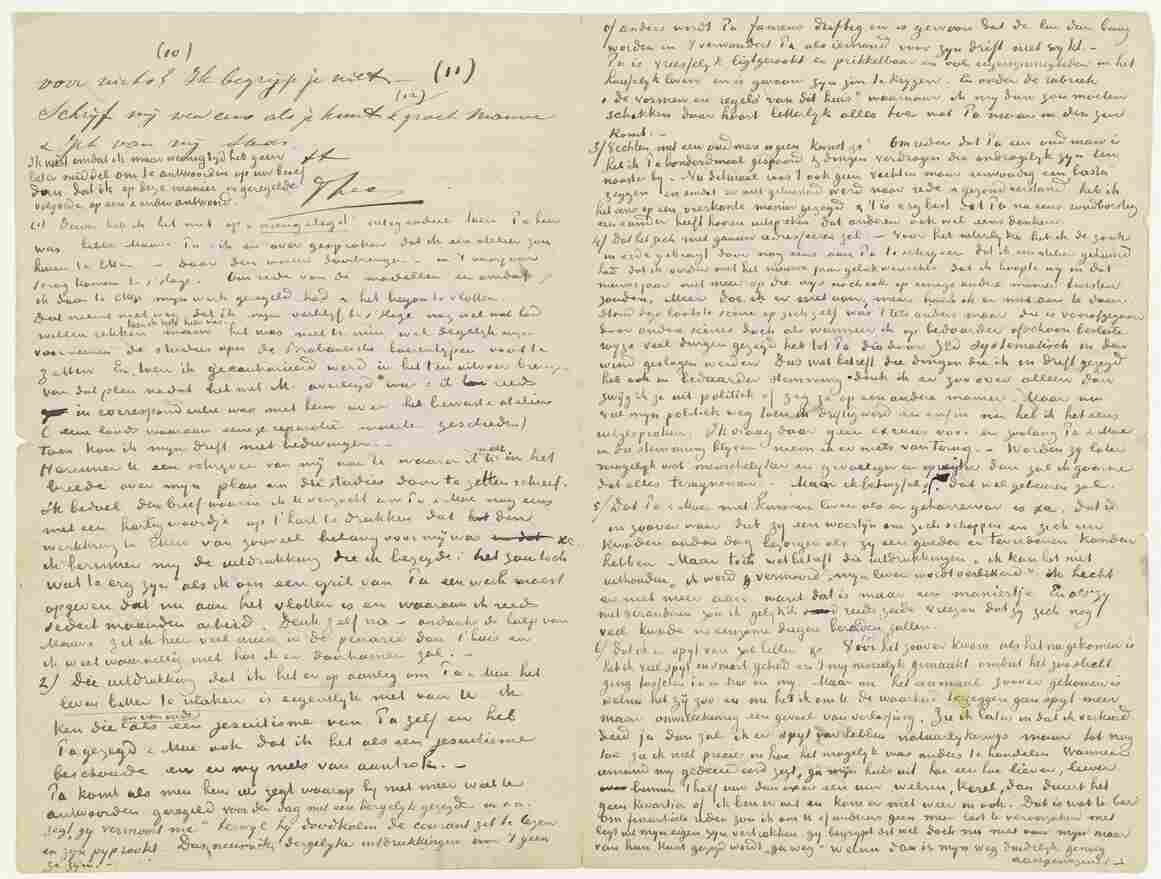 (10)
voor niets? Ik begrijp je niet — (11)
(12)
Schrijf mij weer eens als je kunt & groet Mauve
& Jet van mij
Ik wist omdat ik maar weinig tijd heb geen
beter middel om te antwoorden op uw brief
dan dat ik op deze manier in geregelde
volgorde op een & ander antwoord.
tt
Theo
(1) heb ik het niet op
was hebben Mauve Pa & ik er over gesproken dat ik een atelier zou
huren te Etten — daar den winter doorbrengen — in 't voorjaar
terug komen te s'Hage. Om rede van de modellen en omdat
ik daar te Etten mijn werk geregeld had & het begon te vlotten.
Dat neemt niet weg dat ik mijn verblijf te s Hage nog wel wat had
willen rekken maar het was niettemin wel degelijk mijn
voornemen de studies van de Brabantsche boerentypen voort te
zetten En toen ik gecontrarieerd werd in het ten uitvoer breng-
van dat plan nadat het met M. overlegd was & ik reeds
in correspondentie was met hem over het bewuste atelier
(een loods waaraan eenige reparatie moest geschieden)
toen kon ik mijn drift niet bedwingen. —
Herinner U een schrijven van mij aan U waarin ik U nog in het
breede over mijn plan om die studies door te zetten schreef.
Ik bedoel den brief waarin ik U verzocht om Pa & Moe nog eens
met een hartig woordje op 't hart te drukken dat het den
werkkring te Etten van zooveel belang voor mij was &c
ik herinner mij de uitdrukking die ik bezigde: het zou toch
wat te erg zijn als ik om een gril van Pa een werk moest
opgeven dat nu aan het vlotten is en waaraan ik reeds
sedert maanden arbeid. Denk zelf na — ondanks de hulp van
Mauve zit ik hier veel meer in de penarie dan t'huis en
ik weet waarachtig niet hoe ik er doorkomen zal. —
2) Die uitdrukking dat ik het er op aanleg om Pa & Moe het
leven bitter te maken is eigenlijk niet van U ik
ken die als een jesuitisme van Pa zelf en heb
Pa gezegd & Moe ook dat ik het als een jesuitisme
beschouwde en er mij niets van aantrok. —
Pa komt als men hem iets zegt waarop hij niet meer weet te
antwoorden geregeld voor den dag met een dergelijk gezegde en o.a.
zegt "gij vermoordt me" terwijl hij doodkalm de courant zit te lezen
en zijn pijp rookt Dus neem ik dergelijke uitdrukkingen voor 't geen
ze zijn. —
Of anders wordt Pa fameus driftig en is gewoon dat de lui dan bang
worden en 't verwondert Pa als iemand voor zijn drift niet wijkt. —
Pa is vreesselijk ligtgeraakt en prikkelbaar en vol eigenzinnigheden in het
huisselijk leven en is gewoon zijn zin te krijgen. En onder de rubriek
"de vormen en regels van dit huis" waarnaar ik mij dan zou moeten
schikken daar hoort letterlijk alles toe wat Pa maar in den zin
komt. —
3) Vechten met een oud man is geen kunst &c. Om reden dat Pa een oud man is
heb ik Pa honderdmaal gespaard & dingen verdragen die ondragelijk zijn ten
naasten bij. — Nu ditmaal was 't ook geen vechten maar eenvoudig een basta
zeggen en omdat er niet geluisterd werd naar rede & gezond verstand heb ik
het eens op een overkorte manier gezegd & 't is erg best dat Pa nu eens rondborstig
een en ander heeft hooren uitspreken dat anderen ook wel eens denken.
4) Dat het zich niet gauw redresseren zal. — Voor het uiterlijke heb ik de zaak
in orde gebragt door nog eens aan Pa te schrijven dat ik een atelier gehuurd
had dat ik verder met het nieuwe jaar geluk wenschte dat ik hoopte wij in dat
nieuwe jaar niet meer op die wijs noch ook op eenige andere manier twisten
zouden. Meer doe ik er niet aan, meer hoef ik er niet aan te doen
Stond deze laatste scène op zich zelf was 't iets anders maar die is voorafgegaan
door andere scènes doch als wanneer ik op bedaarder ofschoon besliste
wijze veel dingen gezegd heb tot Pa die door ZEd systematisch in den
wind geslagen werden Dus wat betreft die dingen die ik in drift gezegd
heb ook in bedaarder stemming denk ik er zoo over alleen dan
zwijg ik ze uit politiek of zeg ze op een andere manier. Maar nu
viel mijn politiek weg toen ik driftig werd en enfin nu heb ik het eens
uitgesproken. Ik vraag daar geen excuus voor en zoolang Pa & Moe
in die stemming blijven neem ik er niets van terug. — Worden zij later
mogelijk wat menschelijker en gevoeliger en dan zal ik gaarne
dat alles terugnemen. Maar ik betwijfel of dat wel gebeuren zal.
5) Dat Pa & Moe niet kunnen leven als er geharrewar is &c. Dat is
in zoover waar dat zij een woestijn om zich scheppen en zich een
kwaden ouden dag bezorgen als zij een goeden en tevredenen konden
hebben Maar toch wat betreft die uitdrukkingen, "ik kan het niet
uithouden" "ik word er vermoord" "mijn leven wordt verbitterd" ik hecht
er niet meer aan want dat is maar een maniertje En als zij
niet veranderen zou ik gelijk ik reeds zeide vreezen dat zij zich nog
veel kwade & eenzame dagen bereiden zullen.
6) dat ik er spijt van zal hebben &c. Vóór het zoover kwam als het nu gekomen is
heb ik veel spijt en smart gehad en 't mij moeielijk gemaakt omdat het zoo slecht
ging tusschen Pa & Moe en mij. Maar nu het eenmaal zoover gekomen is
welnu het zij zoo en nu heb ik om U de waarheid te zeggen geen spijt meer
maar onwillekeurig een gevoel van verlossing. Zie ik later in dat ik verkeerd
deed ja dan zal ik er spijt van hebben natuurlijkerwijs maar tot nog
toe zie ik niet precies in hoe het mogelijk was anders te handelen Wanneer
iemand mij gedecideerd zegt, ga mijn huis uit hoe eer hoe liever, liever
binnen 't half uur dan over een uur, welnu, kerel, dan duurt het
geen kwartier of ik ben er uit en kom er niet weer in ook. Dat is wat te bar
Om financieele reden zou ik om U of anderen geen meer last te veroorzaken niet
ligt uit mijn eigen zijn vertrokken gij begrijpt dit wel doch nu niet van mijn maar
van hun kant gezegd wordt "ga weg" welnu dan is mijn weg duidelijk genoeg
aangewezen. —